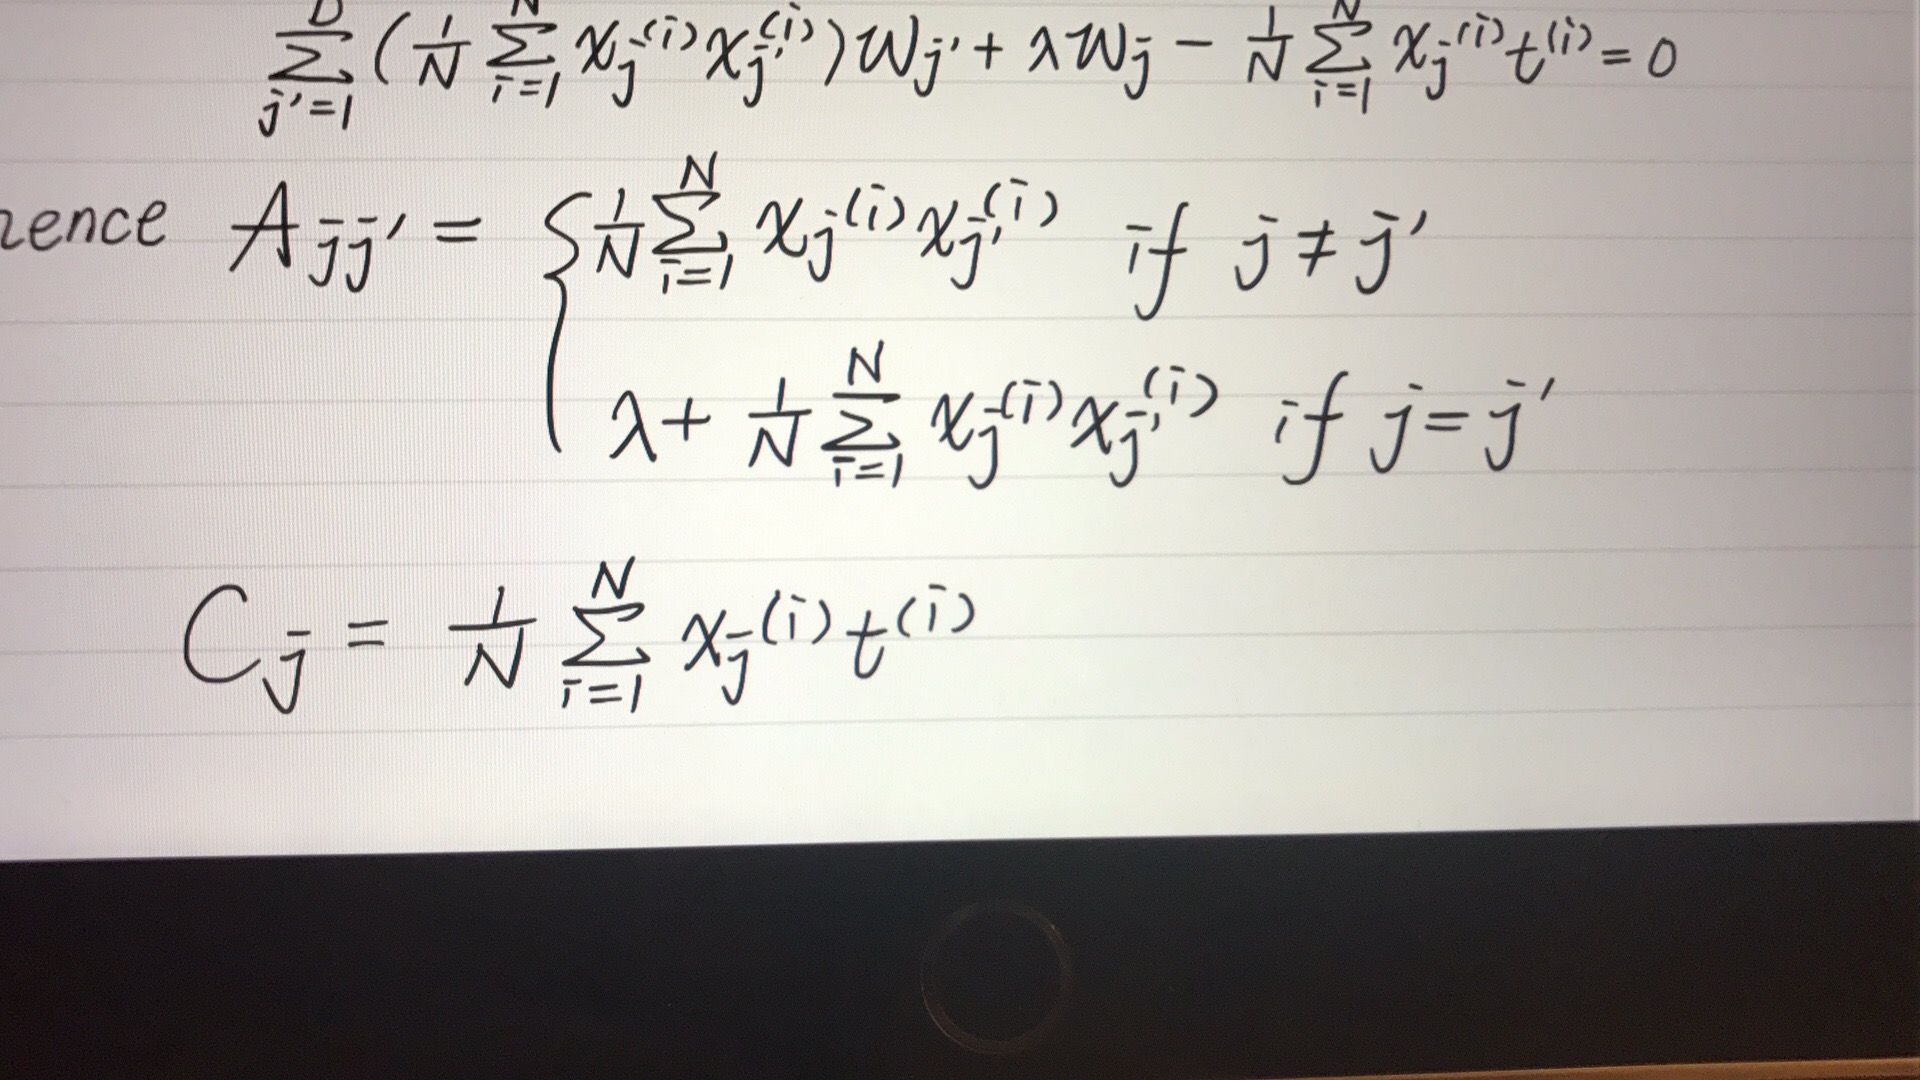 \sum_{j'=1}^{D} ( \frac{1}{N} \sum_{i=1}^{N} x_j^{(i)} x_{j'}^{(i)} ) w_{j'} + \lambda w_j - \frac{1}{N} \sum_{i=1}^{N} x_j^{(i)} t^{(i)} = 0
hence A_{jj'} = { \frac{1}{N} \sum_{i=1}^{N} x_j^{(i)} x_{j'}^{(i)} if j ≠ j'
\lambda + \frac{1}{N} \sum_{i=1}^{N} x_j^{(i)} x_{j'}^{(i)} if j = j'
C_j = \frac{1}{N} \sum_{i=1}^{N} x_j^{(i)} t^{(i)}